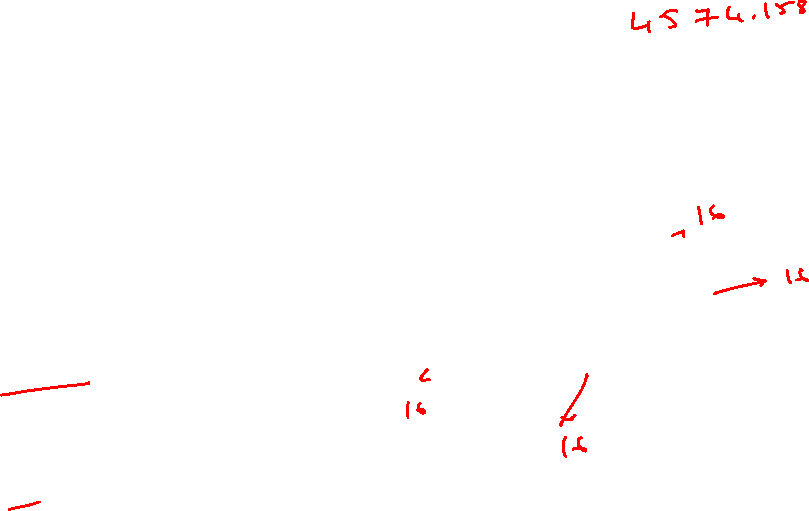 4574.158
16
16
16
16